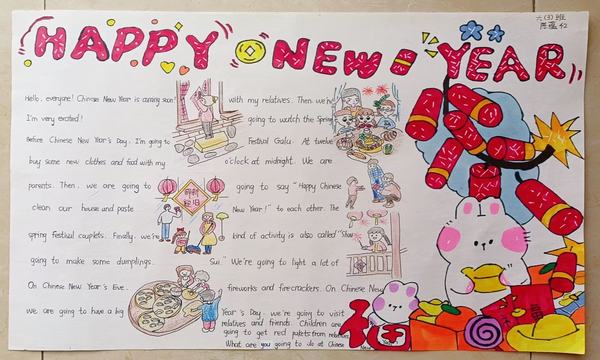 HAPPY NEW YEAR
六(3)班
Hello, everyone! Chinese New Year is coming soon!
I'm very excited!
Before Chinese New Year's Day, I'm going to
buy some new clothes and food with my
parents. Then, we are going to
clean our house and paste
spring festival couplets. Finally, we're
going to make some dumplings.
On Chinese New Year's Eve,
we are going to have a big
with my relatives. Then we're
going to watch the Spring
Festival Gala. At twelve
o'clock at midnight. We are
going to say "Happy Chinese
New Year!" to each other. The
kind of activity is also called "Shou
Sui." We're going to light a lot of
fireworks and firecrackers. On Chinese New
Year's Day, we're going to visit
relatives and friends. Children are
going to get red pakets from
What are you going to do at Chinese
福